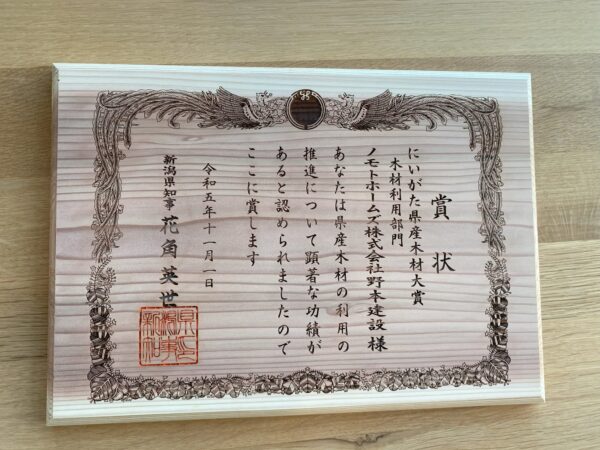 賞状
にいがた県産木材大賞
木材利用部門
ノモトホームズ株式会社野本建設様
あなたは県産木材の利用の
推進について顕著な功績が
あると認められましたので
ここに賞します
令和五年十一月一日
新潟県知事 花角英世